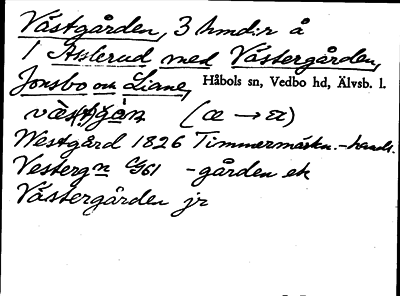 Västgården, 3 hmd:r å
1 Asslerud med Västergården,
Jonsbo o. Liane, Håbols sn, Vedbo hd, Älvsb. l.
væ̀s(t)gàn (æ → a)
Westgård 1826 Timmermärkn.-handl.
Vesterg<u>n</u> G61 -gården ek
Västergården jr